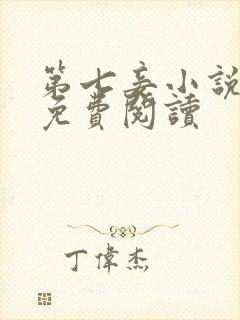 第七妾小說
免費閱讀
丁偉杰